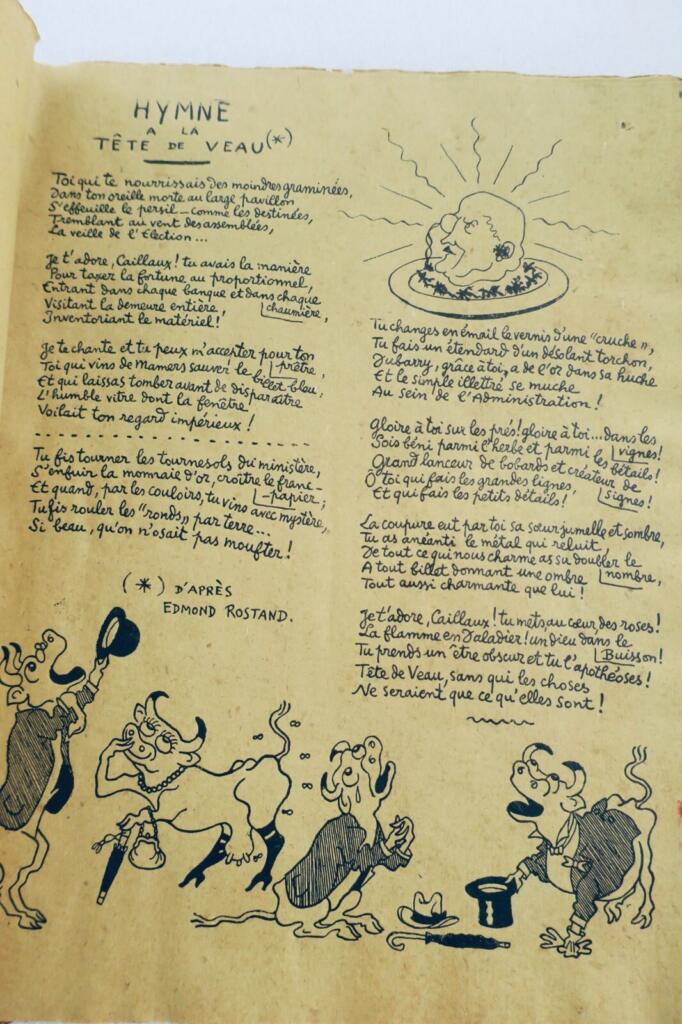 HYMNE
A LA
TÊTE DE VEAU (*)
Toi qui te nourrissais des moindres graminées,
Dans ton oreille morte au large pavillon
S'effeuille le persil – comme les destinées,
Tremblant au vent des assemblées,
La veille de l'Élection...
Je t'adore, Caillaux! tu avais la manière
Pour taxer la fortune au proportionnel,
Entrant dans chaque banque et dans chaque
chaumière,
Visitant la demeure entière,
Inventoriant le matériel!
Je te chante et tu peux m'accepter pour ton
prêtre,
Toi qui vins de Mamers sauver le billet bleu,
Et qui laissas tomber avant de disparaître
L'humble vitre dont la fenêtre
Voilait ton regard impérieux!
Tu fis tourner les tournesols du ministère,
S'enfuir la monnaie d'or, croître le franc-
-papier;
Et quand, par les couloirs, tu vins avec mystère,
Tu fis rouler les "ronds" par terre...
Si beau, qu'on n'osait pas moufter!
(*) D'APRÈS
EDMOND ROSTAND.
Tu changes en émail le vernis d'une "cruche",
Tu fais un étendard d'un désolant torchon,
Dubarry, grâce à toi, a de l'or dans sa huche
Et le simple illettré se muche
Au sein de l'Administration!
Gloire à toi sur les prés! gloire à toi... dans les
vignes!
Sois béni parmi l'herbe et parmi les bétails!
Grand lanceur de bobards et créateur de
signes!
Ô toi qui fais les grandes lignes
Et qui fais les petits détails!
La coupure eut par toi sa sœur jumelle et sombre,
Tu as anéanti le métal qui reluit,
De tout ce qui nous charme as su doubler le
nombre,
A tout billet donnant une ombre
Tout aussi charmante que lui!
Je t'adore, Caillaux! tu mets au cœur des roses!
La flamme en Daladier! un dieu dans le
Buisson!
Tu prends un être obscur et tu l'apothéoses!
Tête de Veau, sans qui les choses
Ne seraient que ce qu'elles sont!